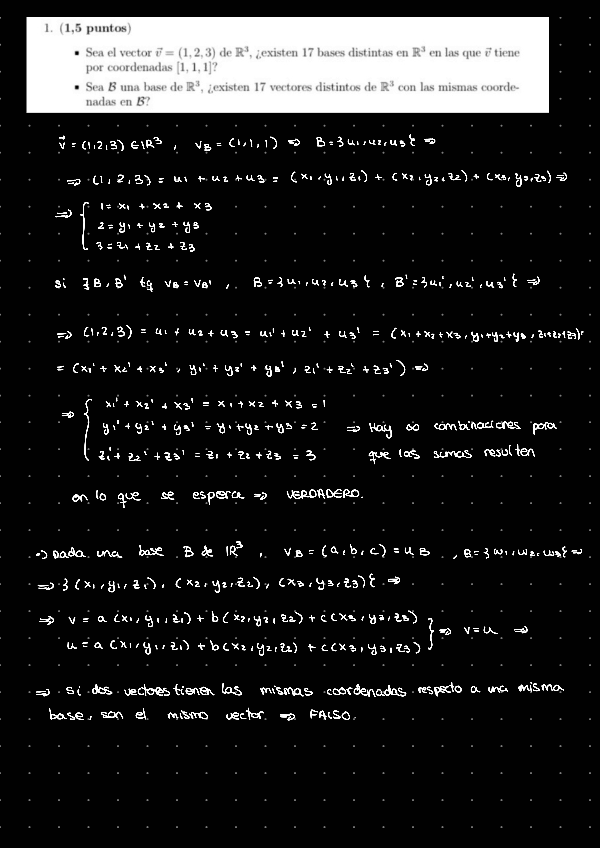 1. (1,5 puntos)
▪ Sea el vector v⃗ = (1, 2, 3) de ℝ³, ¿existen 17 bases distintas en ℝ³ en las que v⃗ tiene
por coordenadas [1, 1, 1]?
▪ Sea B una base de ℝ³, ¿existen 17 vectores distintos de ℝ³ con las mismas coorde-
nadas en B?
v⃗ = (1,2,3) ∈ ℝ³ , v_B = (1,1,1) ⇒ B = {u₁,u₂,u₃} ⇒
⇒ (1,2,3) = u₁ + u₂ + u₃ = (x₁,y₁,z₁) + (x₂,y₂,z₂) + (x₃,y₃,z₃) ⇒
⇒ { 1 = x₁ + x₂ + x₃
2 = y₁ + y₂ + y₃
3 = z₁ + z₂ + z₃
si ∃ B, B' tq v_B = v_B' , B = {u₁,u₂,u₃} , B' = {u₁',u₂',u₃'} ⇒
⇒ (1,2,3) = u₁ + u₂ + u₃ = u₁' + u₂' + u₃' = (x₁+x₂+x₃, y₁+y₂+y₃, z₁+z₂+z₃) =
= (x₁' + x₂' + x₃' , y₁' + y₂' + y₃' , z₁' + z₂' + z₃') ⇒
⇒ { x₁' + x₂' + x₃' = x₁ + x₂ + x₃ = 1
y₁' + y₂' + y₃' = y₁ + y₂ + y₃ = 2 ⇒ Hay ∞ combinaciones para
z₁' + z₂' + z₃' = z₁ + z₂ + z₃ = 3 que las sumas resulten
en lo que se espera ⇒ VERDADERO.
•) Dada una base B de ℝ³ , v_B = (a,b,c) = u_B , B = {w₁,w₂,w₃} =
⇒ {(x₁,y₁,z₁), (x₂,y₂,z₂), (x₃,y₃,z₃)} ⇒
⇒ v = a(x₁,y₁,z₁) + b(x₂,y₂,z₂) + c(x₃,y₃,z₃) } ⇒ v = u ⇒
u = a(x₁,y₁,z₁) + b(x₂,y₂,z₂) + c(x₃,y₃,z₃)
⇒ si dos vectores tienen las mismas coordenadas respecto a una misma
base, son el mismo vector ⇒ FALSO.